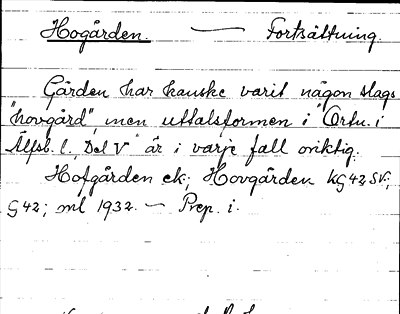 Hogården. — Fortsättning.
Gården har kanske varit någon slags
"hovgård", men uttalsformen i "Ortn. i
Älfsb. l., Del V" är i varje fall oriktig.
Hofgården ek; Hovgården KG 42 SV;
G 42; ml 1932. — Prep. i.